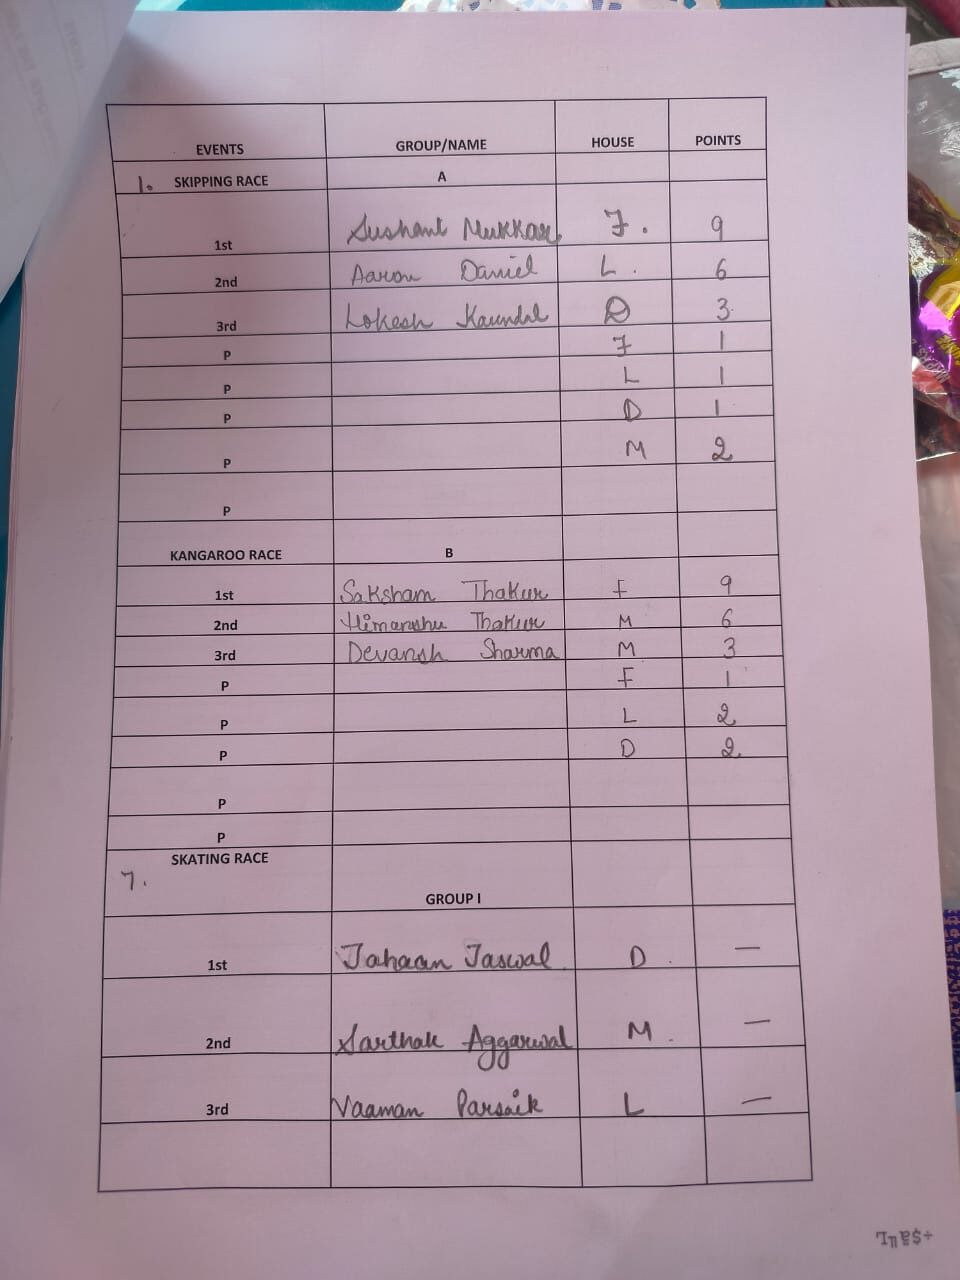 EVENTS GROUP/NAME HOUSE POINTS
1. SKIPPING RACE A
1st Sushant Mukkar F. 9
2nd Aaron Daniel L. 6
3rd Lokesh Kaundal D 3
P F 1
P L 1
P D 1
P M 2
P
KANGAROO RACE B
1st Saksham Thakur F 9
2nd Himanshu Thakur M 6
3rd Devansh Sharma M 3
P F 1
P L 2
P D 2
P
P
SKATING RACE
7.
GROUP I
1st Jahaan Jaswal D. —
2nd Sarthak Aggarwal M. —
3rd Vaaman Parsaik L —